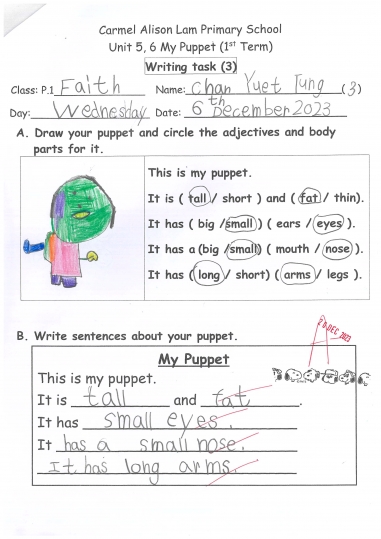 Carmel Alison Lam Primary School
Unit 5, 6 My Puppet (1st Term)
Writing task (3)
Class: P.1 Faith Name: Chan Yuet Tung (3)
Day: Wednesday Date: 6th December 2023
A. Draw your puppet and circle the adjectives and body
parts for it.
This is my puppet.
It is ( tall / short ) and ( fat / thin).
It has ( big / small ) ( ears / eyes ).
It has a (big / small) ( mouth / nose ).
It has ( long / short) ( arms / legs ).
B. Write sentences about your puppet.
DEC 2023
A
My Puppet
This is my puppet.
It is tall and fat.
It has small eyes.
It has a small nose.
It has long arms.